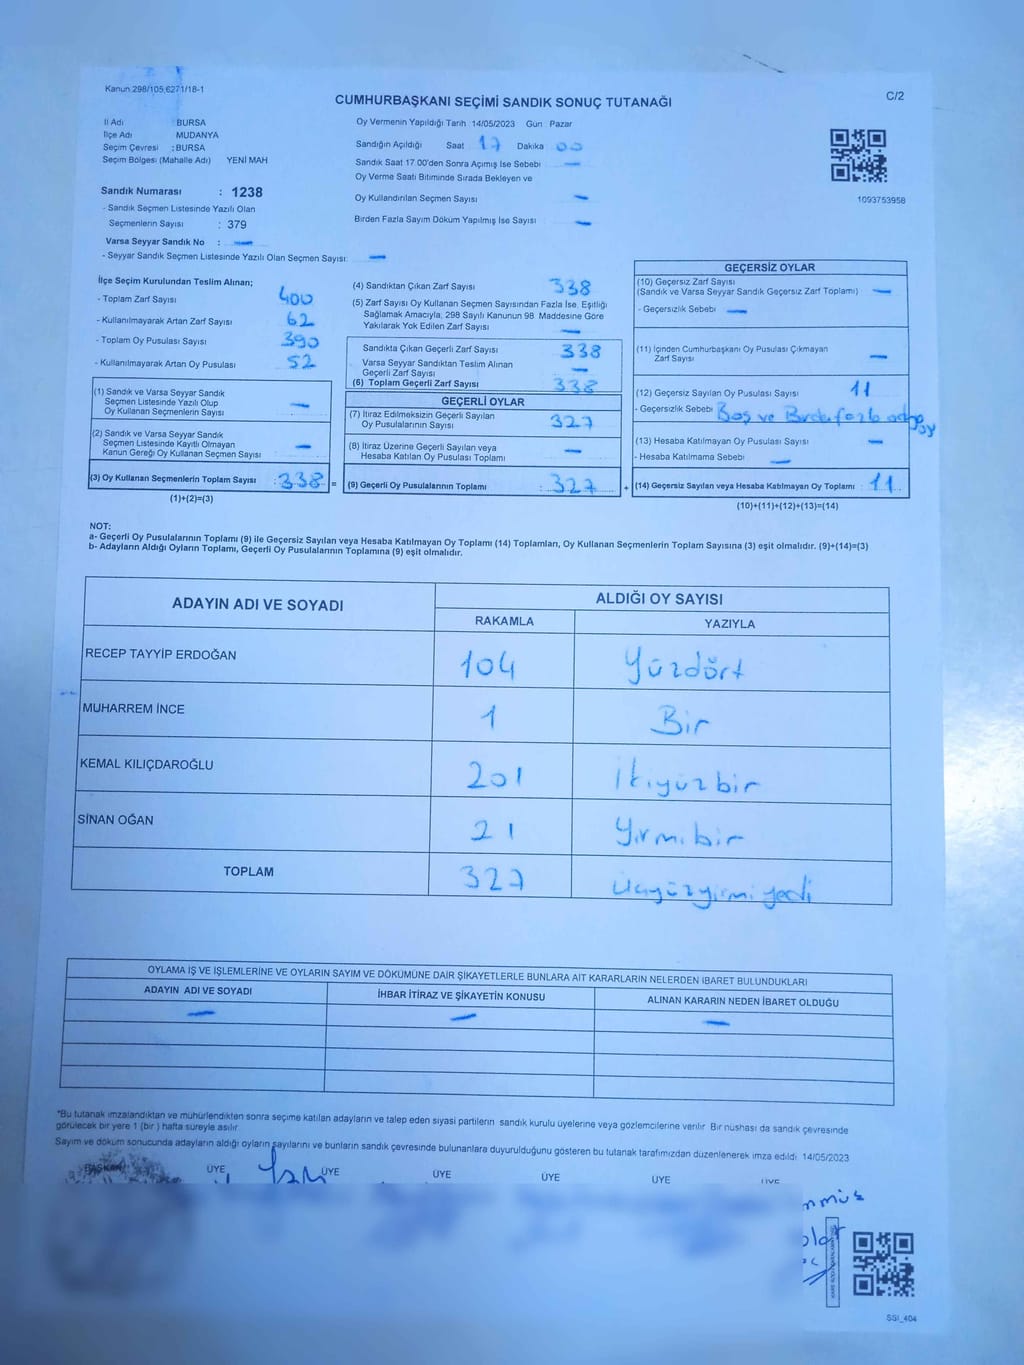 Kanun 298/105,6271/18-1
CUMHURBAŞKANI SEÇİMİ SANDIK SONUÇ TUTANAĞI
C/2
İl Adı : BURSA
İlçe Adı MUDANYA
Seçim Çevresi : BURSA
Seçim Bölgesi (Mahalle Adı) YENİ MAH
Sandık Numarası : 1238
- Sandık Seçmen Listesinde Yazılı Olan
Seçmenlerin Sayısı : 379
Varsa Seyyar Sandık No : —
- Seyyar Sandık Seçmen Listesinde Yazılı Olan Seçmen Sayısı: —
Oy Vermenin Yapıldığı Tarih :14/05/2023 Gün : Pazar
Sandığın Açıldığı Saat 17 Dakika 00
Sandık Saat 17.00'den Sonra Açımış İse Sebebi —
Oy Verme Seati Bitiminde Sırada Bekleyen ve
Oy Kullandırılan Seçmen Sayısı —
Birden Fazla Sayım Döküm Yapılmış İse Sayısı —
1093753958
İlçe Seçim Kurulundan Teslim Alınan;
- Toplam Zarf Sayısı 400
- Kullanılmayarak Artan Zarf Sayısı 62
- Toplam Oy Pusulası Sayısı 390
- Kullanılmayarak Artan Oy Pusulası 52
(1) Sandık ve Varsa Seyyar Sandık
Seçmen Listesinde Yazılı Olup
Oy Kullanan Seçmenlerin Sayısı —
(2) Sandık ve Varsa Seyyar Sandık
Seçmen Listesinde Kayıtlı Olmayan
Kanun Gereği Oy Kullanan Seçmen Sayısı —
(3) Oy Kullanan Seçmenlerin Toplam Sayısı : 338 =
(1)+(2)=(3)
(4) Sandıktan Çıkan Zarf Sayısı 338
(5) Zarf Sayısı Oy Kullanan Seçmen Sayısından Fazla İse, Eşitliği
Sağlamak Amacıyla, 298 Sayılı Kanunun 98. Maddesine Göre
Yakılarak Yok Edilen Zarf Sayısı —
Sandıkta Çıkan Geçerli Zarf Sayısı 338
Varsa Seyyar Sandıktan Teslim Alınan
Geçerli Zarf Sayısı —
(6) Toplam Geçerli Zarf Sayısı 338
GEÇERLİ OYLAR
(7) İtiraz Edilmeksizin Geçerli Sayılan
Oy Pusulalarının Sayısı 327
(8) İtiraz Üzerine Geçerli Sayılan veya
Hesaba Katılan Oy Pusulası Toplamı —
(9) Geçerli Oy Pusulalarının Toplamı : 327 +
GEÇERSİZ OYLAR
(10) Geçersiz Zarf Sayısı
(Sandık ve Varsa Seyyar Sandık Geçersiz Zarf Toplamı) —
- Geçersizlik Sebebi : —
(11) İçinden Cumhurbaşkanı Oy Pusulası Çıkmayan
Zarf Sayısı —
(12) Geçersiz Sayılan Oy Pusulası Sayısı 11
- Geçersizlik Sebebi : Boş ve Birden fazla oy
(13) Hesaba Katılmayan Oy Pusulası Sayısı —
- Hesaba Katılmama Sebebi : —
(14) Geçersiz Sayılan veya Hesaba Katılmayan Oy Toplamı : 11
(10)+(11)+(12)+(13)=(14)
NOT:
a- Geçerli Oy Pusulalarının Toplamı (9) ile Geçersiz Sayılan veya Hesaba Katılmayan Oy Toplamı (14) Toplamları, Oy Kullanan Seçmenlerin Toplam Sayısına (3) eşit olmalıdır. (9)+(14)=(3)
b- Adayların Aldığı Oyların Toplamı, Geçerli Oy Pusulalarının Toplamına (9) eşit olmalıdır.
ADAYIN ADI VE SOYADI
ALDIĞI OY SAYISI
RAKAMLA YAZIYLA
RECEP TAYYİP ERDOĞAN 104 Yüzdört
MUHARREM İNCE 1 Bir
KEMAL KILIÇDAROĞLU 201 İkiyüzbir
SİNAN OĞAN 21 Yirmibir
TOPLAM 327 Üçyüzyirmiyedi
OYLAMA İŞ VE İŞLEMLERİNE VE OYLARIN SAYIM VE DÖKÜMÜNE DAİR ŞİKAYETLERLE BUNLARA AİT KARARLARIN NELERDEN İBARET BULUNDUKLARI
ADAYIN ADI VE SOYADI İHBAR İTİRAZ VE ŞİKAYETİN KONUSU ALINAN KARARIN NEDEN İBARET OLDUĞU
— — —
*Bu tutanak imzalandıktan ve mühürlendikten sonra seçime katılan adayların ve talep eden siyasi partilerin sandık kurulu üyelerine veya gözlemcilerine verilir. Bir nüshası da sandık çevresinde
görülecek bir yere 1 (bir ) hafta süreyle asılır.
Sayım ve döküm sonucunda adayların aldığı oyların sayılarını ve bunların sandık çevresinde bulunanlara duyurulduğunu gösteren bu tutanak tarafımızdan düzenlenerek imza edildi. 14/05/2023
BAŞKAN ÜYE ÜYE ÜYE ÜYE ÜYE ÜYE
SSI_404